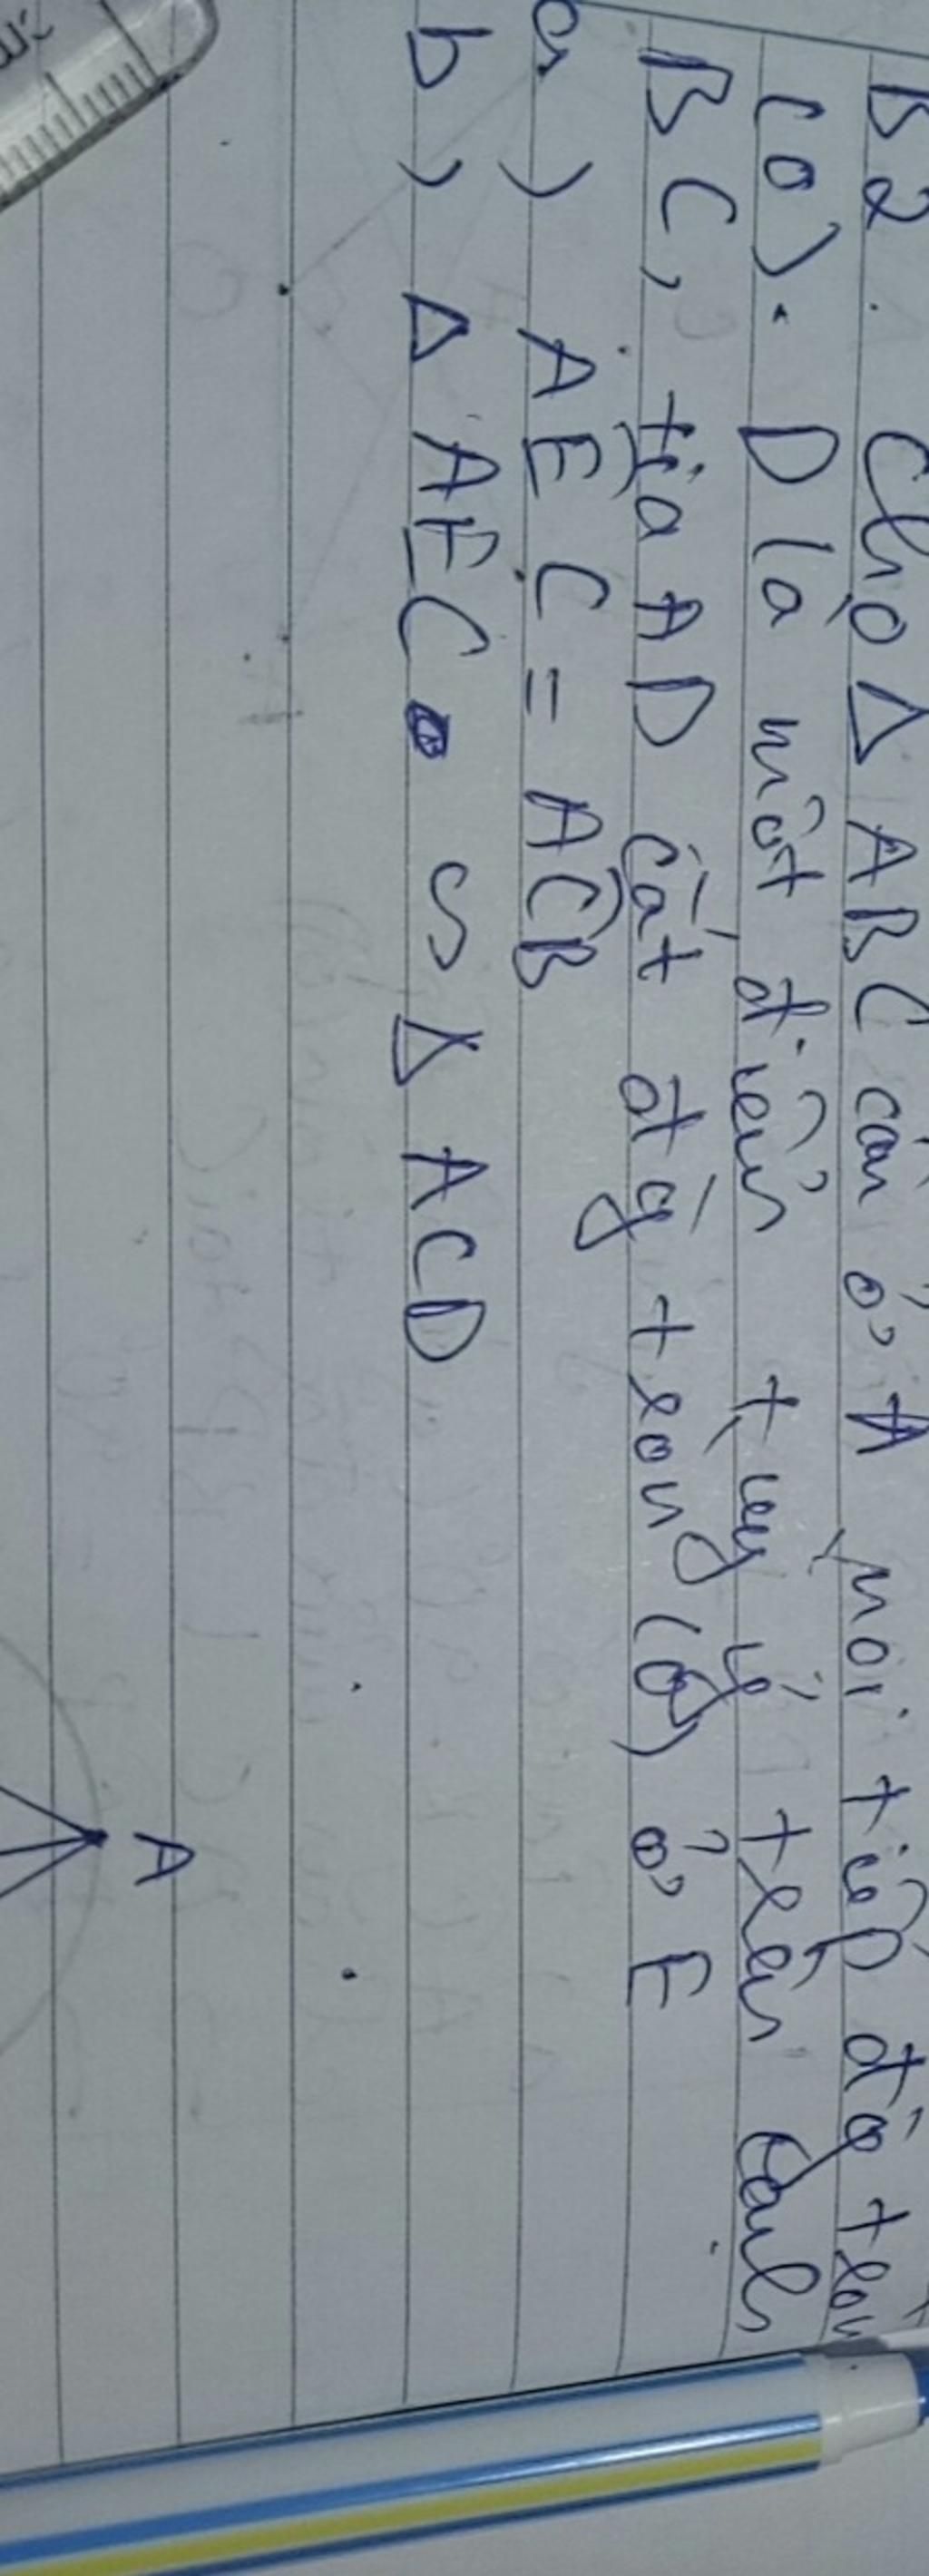 B2. Cho Δ ABC cân ở A nội tiếp đg tròn
(O). D là một điểm tùy ý trên cạnh
BC, tia AD cắt đg tròng (O) ở E
a) AEC = ACB
b) Δ AEC ∽ Δ ACD
A